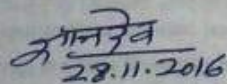 ज्ञानदेव
28.11.2016